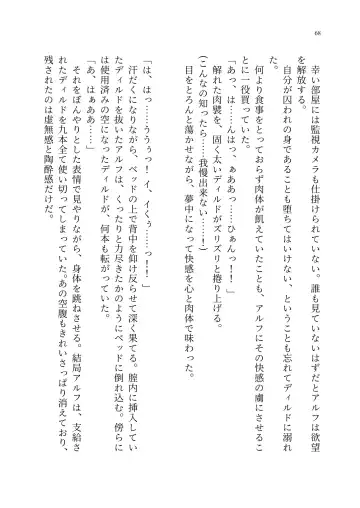 68
幸い部屋には監視カメラも仕掛けられていない。誰も見ていないはずだとアルフは欲望
を解放する。
自分が囚われの身であることも堕ちてはいけない、ということも忘れてディルドに溺れ
た。
何より食事をとっておらず肉体が飢えていたことも、アルフにその快感の虜にさせるこ
とに一役買っていた。
「あっ、は……んはっ、あああっ……ひぁんっ！！」
解れた肉襞を、固く太いディルドがズリズリと捲り上げる。
(こんなの知ったら……我慢出来ない……！)
目をとろんと蕩かせながら、夢中になって快感を心と肉体で味わった。
「は、はっ……ううぅっ！　イ、イくぅ……っ！！」
汗だくになりながら、ベッドの上で背中を仰け反らせて深く果てる。膣内に挿入してい
たディルドを抜いたアルフは、くったりと力尽きたかのようにベッドに倒れ込む。傍らに
は使用済みの空になったディルドが、何本も転がっていた。
「あ、はぁああ……」
それをぼんやりとした表情で見やりながら、身体を跳ねさせる。結局アルフは、支給さ
れたディルドを九本全て使い切ってしまっていた。あの空腹もきれいさっぱり消えており、
残されたのは虚無感と陶酔感だけだ。